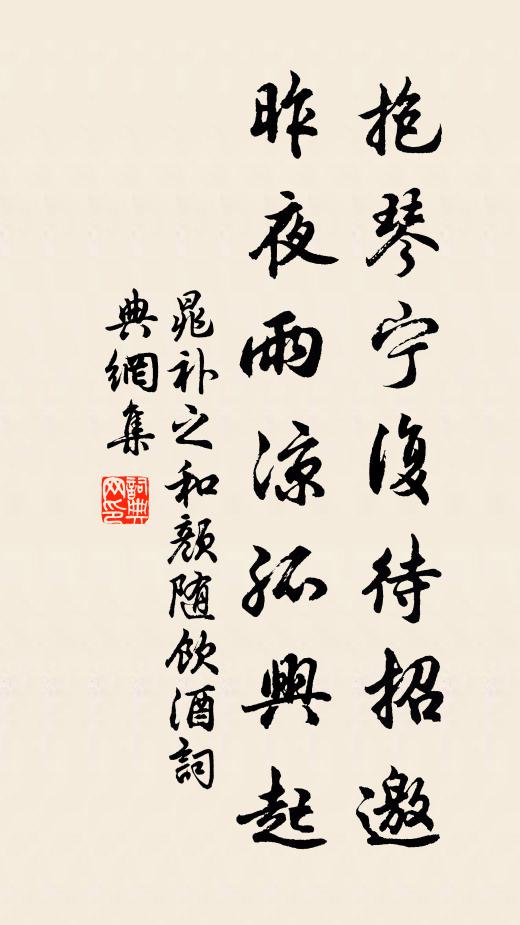 抱琴宁復待招邀
昨夜雨涼孤興起
晁补之和顏随飲酒詞
典網集
詞典网印